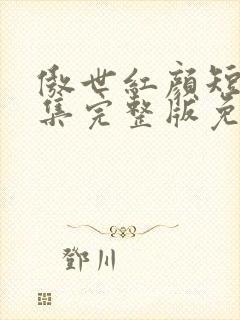 傲世紅顔短
集完整版免
鄧川